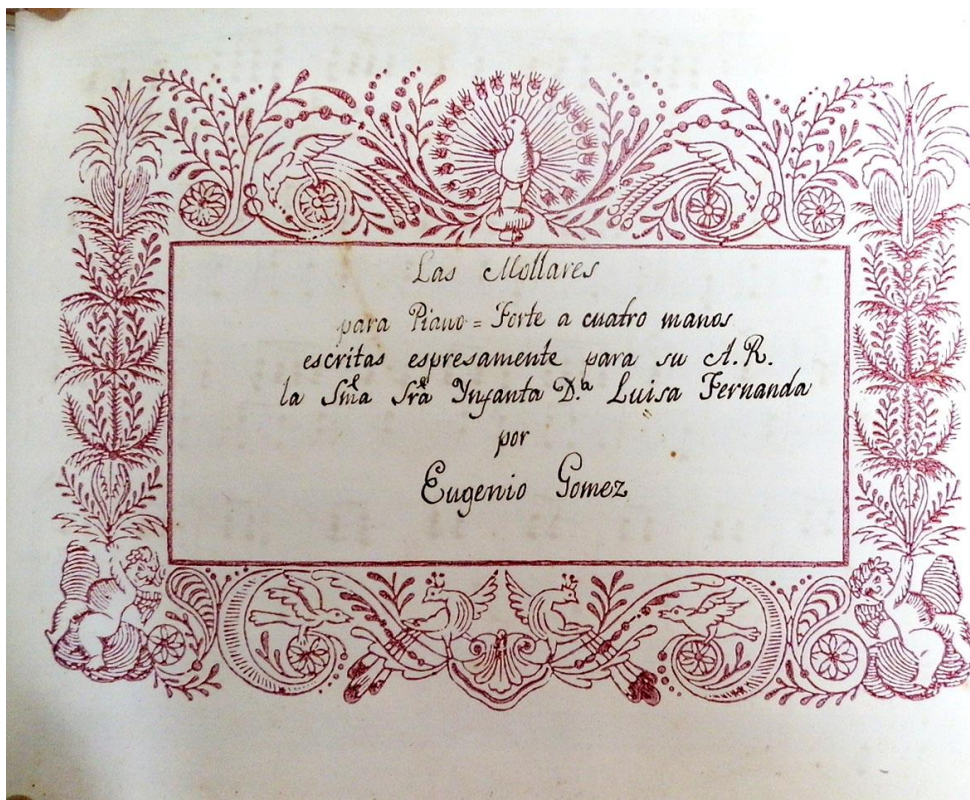 Las Mollares
para Piano = Forte a cuatro manos
escritas espresamente para su A. R.
la Sma Sra Ynfanta D.ª Luisa Fernanda
por
Eugenio Gomez